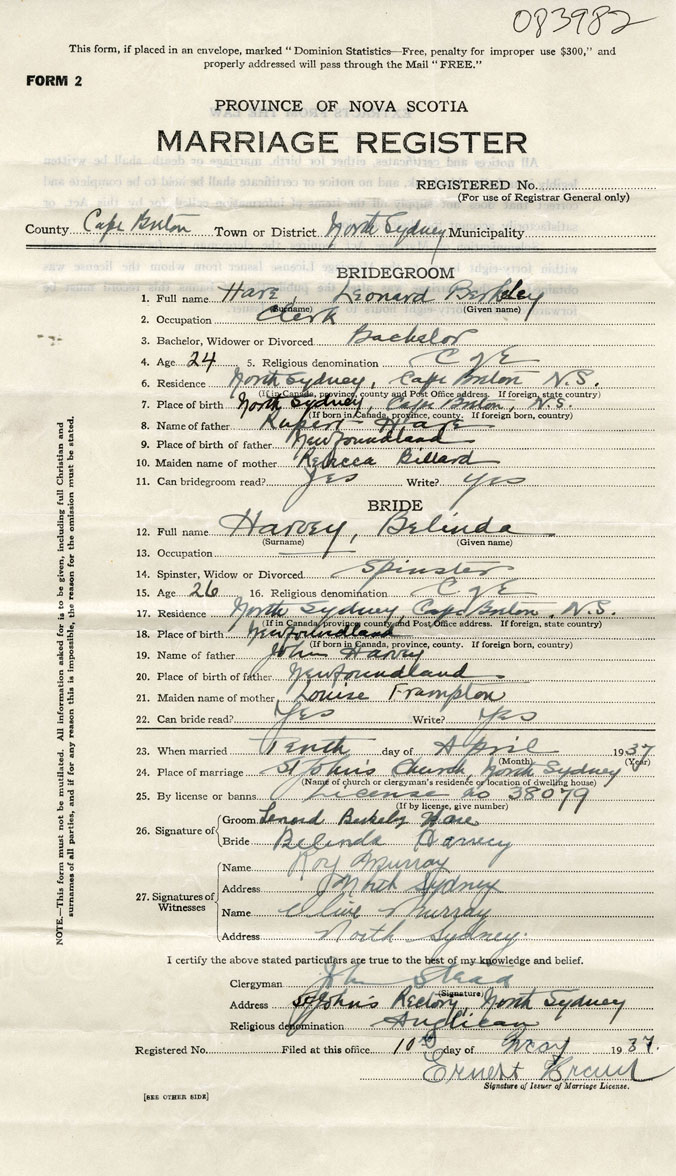 083982
This form, if placed in an envelope, marked "Dominion Statistics—Free, penalty for improper use $300," and
properly addressed will pass through the Mail "FREE."
FORM 2
PROVINCE OF NOVA SCOTIA
MARRIAGE REGISTER
REGISTERED No.
(For use of Registrar General only)
County Cape Breton Town or District North Sydney Municipality
BRIDEGROOM
1. Full name Hare, Leonard Berkeley
(Surname) (Given name)
2. Occupation Clerk
3. Bachelor, Widower or Divorced Bachelor
4. Age 24 5. Religious denomination C of E
6. Residence North Sydney, Cape Breton N.S.
(If in Canada, province, county and Post Office address. If foreign, state country)
7. Place of birth North Sydney, Cape Breton, N.S.
(If born in Canada, province, county. If foreign born, country)
8. Name of father Rupert Hare
9. Place of birth of father Newfoundland
10. Maiden name of mother Rebecca Billard
11. Can bridegroom read? Yes Write? Yes
BRIDE
12. Full name Harvey, Belinda
(Surname) (Given name)
13. Occupation
14. Spinster, Widow or Divorced Spinster
15. Age 26 16. Religious denomination C of E
17. Residence North Sydney, Cape Breton, N.S.
(If in Canada, province, county and Post Office address. If foreign, state country)
18. Place of birth Newfoundland
(If born in Canada, province, county. If foreign born, country)
19. Name of father John Harvey
20. Place of birth of father Newfoundland
21. Maiden name of mother Louise Frampton
22. Can bride read? Yes Write? Yes
23. When married Tenth day of April 1937
(Month) (Year)
24. Place of marriage St John's Church, North Sydney
(Name of church or clergyman's residence or location of dwelling house)
25. By license or banns License no 38079
(If by license, give number)
26. Signature of
Groom Lenord Berkeley Hare
Bride Belinda Harvey
27. Signatures of Witnesses
Name Roy Murray
Address North Sydney
Name Olive Murray
Address North Sydney.
I certify the above stated particulars are true to the best of my knowledge and belief.
Clergyman John Stead
(Signature)
Address St John's Rectory, North Sydney
Religious denomination Anglican
Registered No. Filed at this office 10th day of May 1937.
Ernest
Signature of Issuer of Marriage License.
[SEE OTHER SIDE]
NOTE.—This form must not be mutilated. All information asked for is to be given, including full Christian and
surnames of all parties, and if for any reason this is impossible, the reason for the omission must be stated.